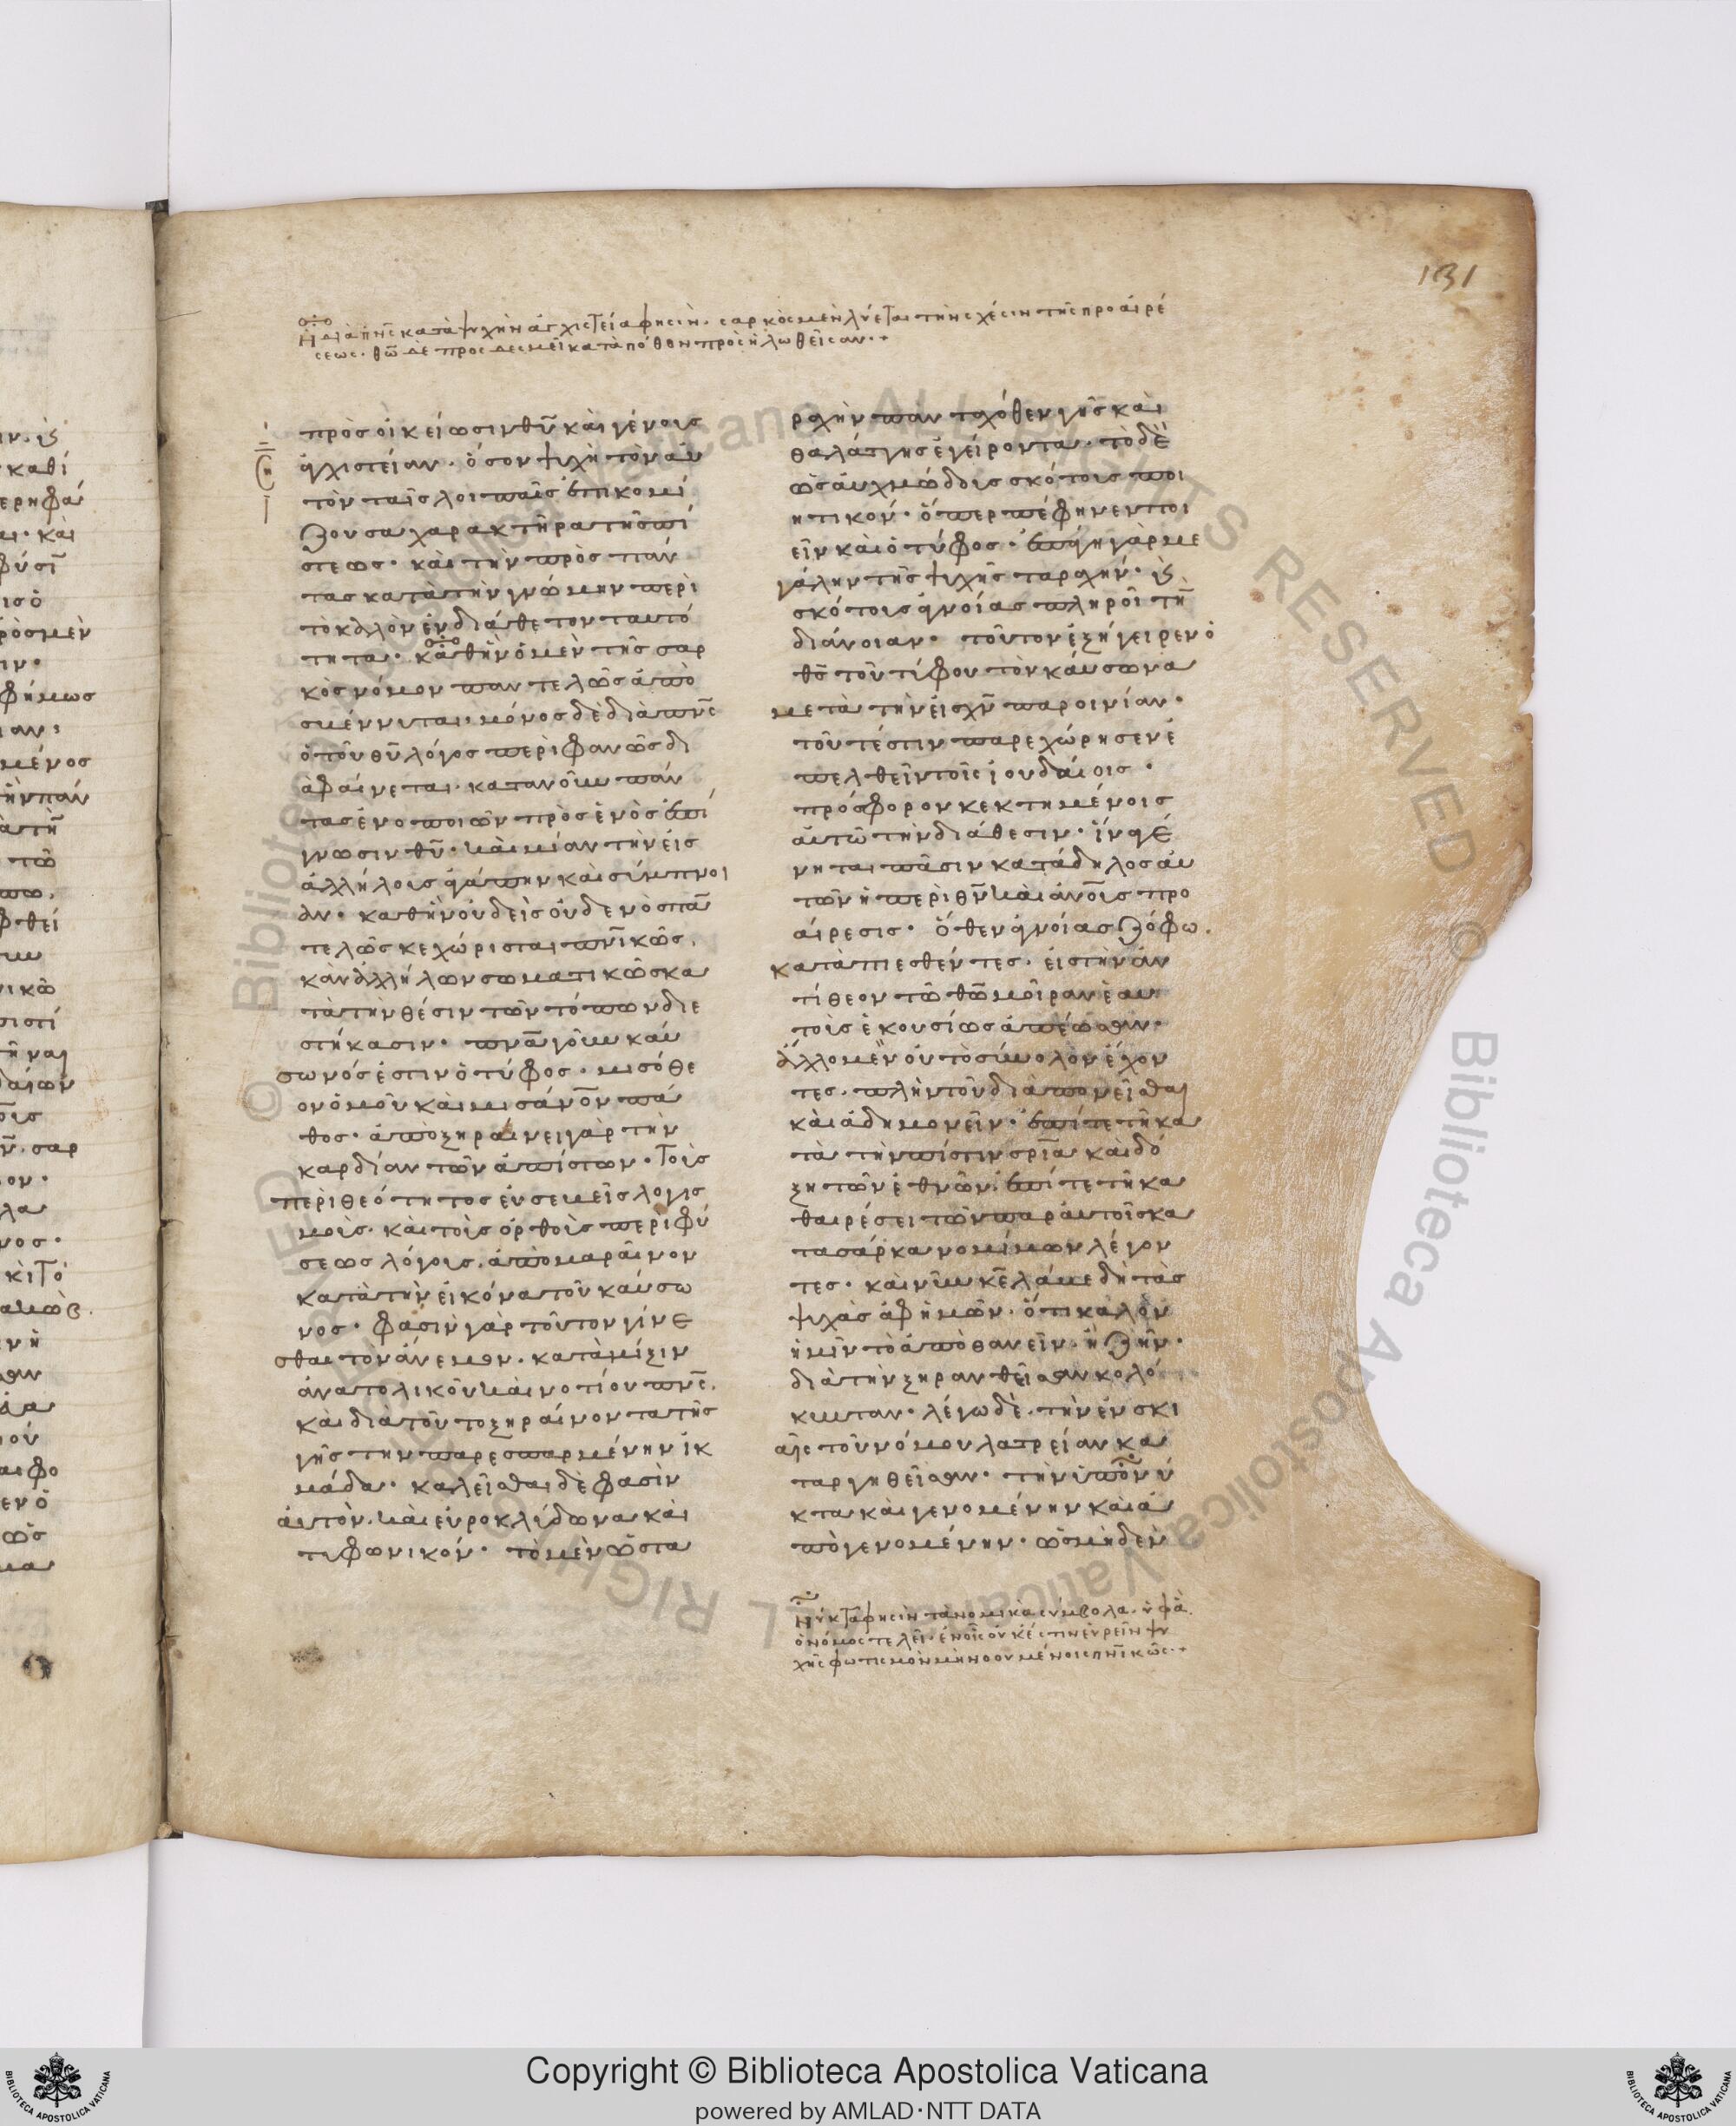 131
Ἡ διὰ πν̅ς κατὰ ψυχὴν ἀγχιστεία φησιν· σαρκὸς μὲν λύεται τὴν σχέσιν τῆς προαιρέ
σεως· θω̅ δὲ προσδεσμεῖ κατὰ πόθον προσηλωθεῖσαν·
πρὸς οἰκείωσιν θυ̅ καὶ γένους
ἀγχιστείαν· ὅσον ψυχὴ τὸν αὐ
τὸν ταῖς λοιπαῖς ἐπικομί
ζουσα χαρακτῆρα τῆς πί
στεως· καὶ τὴν πρὸς πάν
τας κατὰ τὴν γνώμην περὶ
τὸ καλὸν ἐνδιάθετον ταυτό
τητα· καθ ἣν ὁ μὲν τῆς σαρ
κὸς νόμον παντελῶς ἀπο
σβέννυται· μόνος δὲ διὰ πν̅ς
ὁ τοῦ θυ̅ λόγος περιφανῶς δι
αφαίνεται· κατανοῦν πάν
τας ἑνοποιῶν πρὸς ἑνὸς ἐπί
γνωσιν θυ̅· καὶ μίαν τὴν εἰς
ἀλλήλους ἀγάπην καὶ σύμπνοι
αν· καθ ἣν οὐδεὶς οὐδενὸς παν
τελῶς κεχώρισται πν̅ικῶς·
κἂν ἀλλήλων σωματικῶς κα
τὰ τὴν θέσιν τῶν τόπων διε
στήκασιν· πν̅α γοῦν καύ
σωνός ἐστιν ὁ τύφος· μισόθε
ον ὁμοῦ καὶ μισάνον̅ πά
θος· ἀποξηραίνει γὰρ τὴν
καρδίαν τῶν ἀπίστων· τοῖς
περὶ θεότητος εὐσεβεῖς λογισ
μοὺς· καὶ τοὺς ὀρθοὺς περὶ φύ
σεως λόγους· ἀπομαραῖνον
κατὰ τὴν εἰκόνα τοῦ καύσω
νος· φασὶν γὰρ τοῦτον γίνε
σθαι τὸν ἄνεμον· κατὰ μίξιν
ἀνατολικοῦ καὶ νοτίου πν̅ς·
καὶ διὰ τοῦτο ξηραίνοντα τῆς
γῆς τὴν παρεσπαρμένην ἰκ
μάδα· καλεῖσθαι δὲ φασὶν
αὐτὸν· καὶ εὐροκλύδωνα καὶ
τυφωνικόν· τὸ μὲν ὡς τα
ραχὴν πανταχόθεν γῆς καὶ
θαλάττης ἐγείροντα· τὸ δὲ
ὡς αὐχμώδους σκότους ποι
ητικόν· ὅπερ πέφηνεν ποι
εῖν καὶ ὁ τύφος· ἐπάγει γὰρ με
γάλην τῆς ψυχῆς ταραχήν· καὶ
σκότους ἀγνοίας πληροῖ τὴν
διάνοιαν· τοῦτον ἐξήγειρεν ὁ
θς̅ τοῦ τύφου τὸν καύσωνα
μετὰ τὴν εἰς χν̅ παροινίαν·
τοῦτέστιν παρεχώρησεν ἐ
πελθεῖν τοῖς ἰουδαίοις·
πρόσφορον κεκτημένοις
αὐτῶ τὴν διάθεσιν· ἵνα γέ
νηται πᾶσιν κατάδηλος αὐ
τῶν ἡ περὶ θν̅ καὶ ἀνο̅υς προ
αίρεσις· ὅθεν ἀγνοίας ζόφω
καταπιεσθέντες· εἰς τὴν ἀν
τίθεον τῶ θω̅ μοῖραν ἑαυ
τοὺς ἑκουσίως ἀπέωσαν·
ἄλλο μὲν οὐ τὸ σύνολον ἔχον
τες· πλὴν τοῦ διαπονεῖσθαι
καὶ ἀδημονεῖν· ἐπί τε τῆ κα
τὰ τὴν πίστιν σρι̅α καὶ δό
ξη τῶν ἐθνῶν· ἐπί τε τῆ κα
θαιρέσει τῶν παρ αὐτοῖς κα
τα σάρκα νομίμων λέγον
τες· καὶ νῦν κε̅ λάβε δὴ τὰς
ψυχὰς ἀφ ἡμῶν· ὅτι καλὸν
ἡμῖν τὸ ἀποθανεῖν· ἢ ζῆν·
διὰ τὴν ξηρανθεῖσαν κολό
κυνταν· λέγω δὲ· τὴν ἐν σκι
αῖς τοῦ νόμου λατρείαν κα
ταργηθεῖσαν· τὴν ὑπὸ νύ
κτα καὶ γενομένην καὶ ἀ
πογενομένην· ὡς μηδὲν
Ἡ νύκτα φησιν τὰ νομικὰ σύμβολα· ὑφ ἃ
ὁ νόμος τελεῖ· ἐν οἷς οὐκ ἐστιν εὑρεῖν ψυ
χῆς φωτισμὸν μὴ νοουμένοις πν̅ικῶς·
Copyright © Biblioteca Apostolica Vaticana
powered by AMLAD·NTT DATA